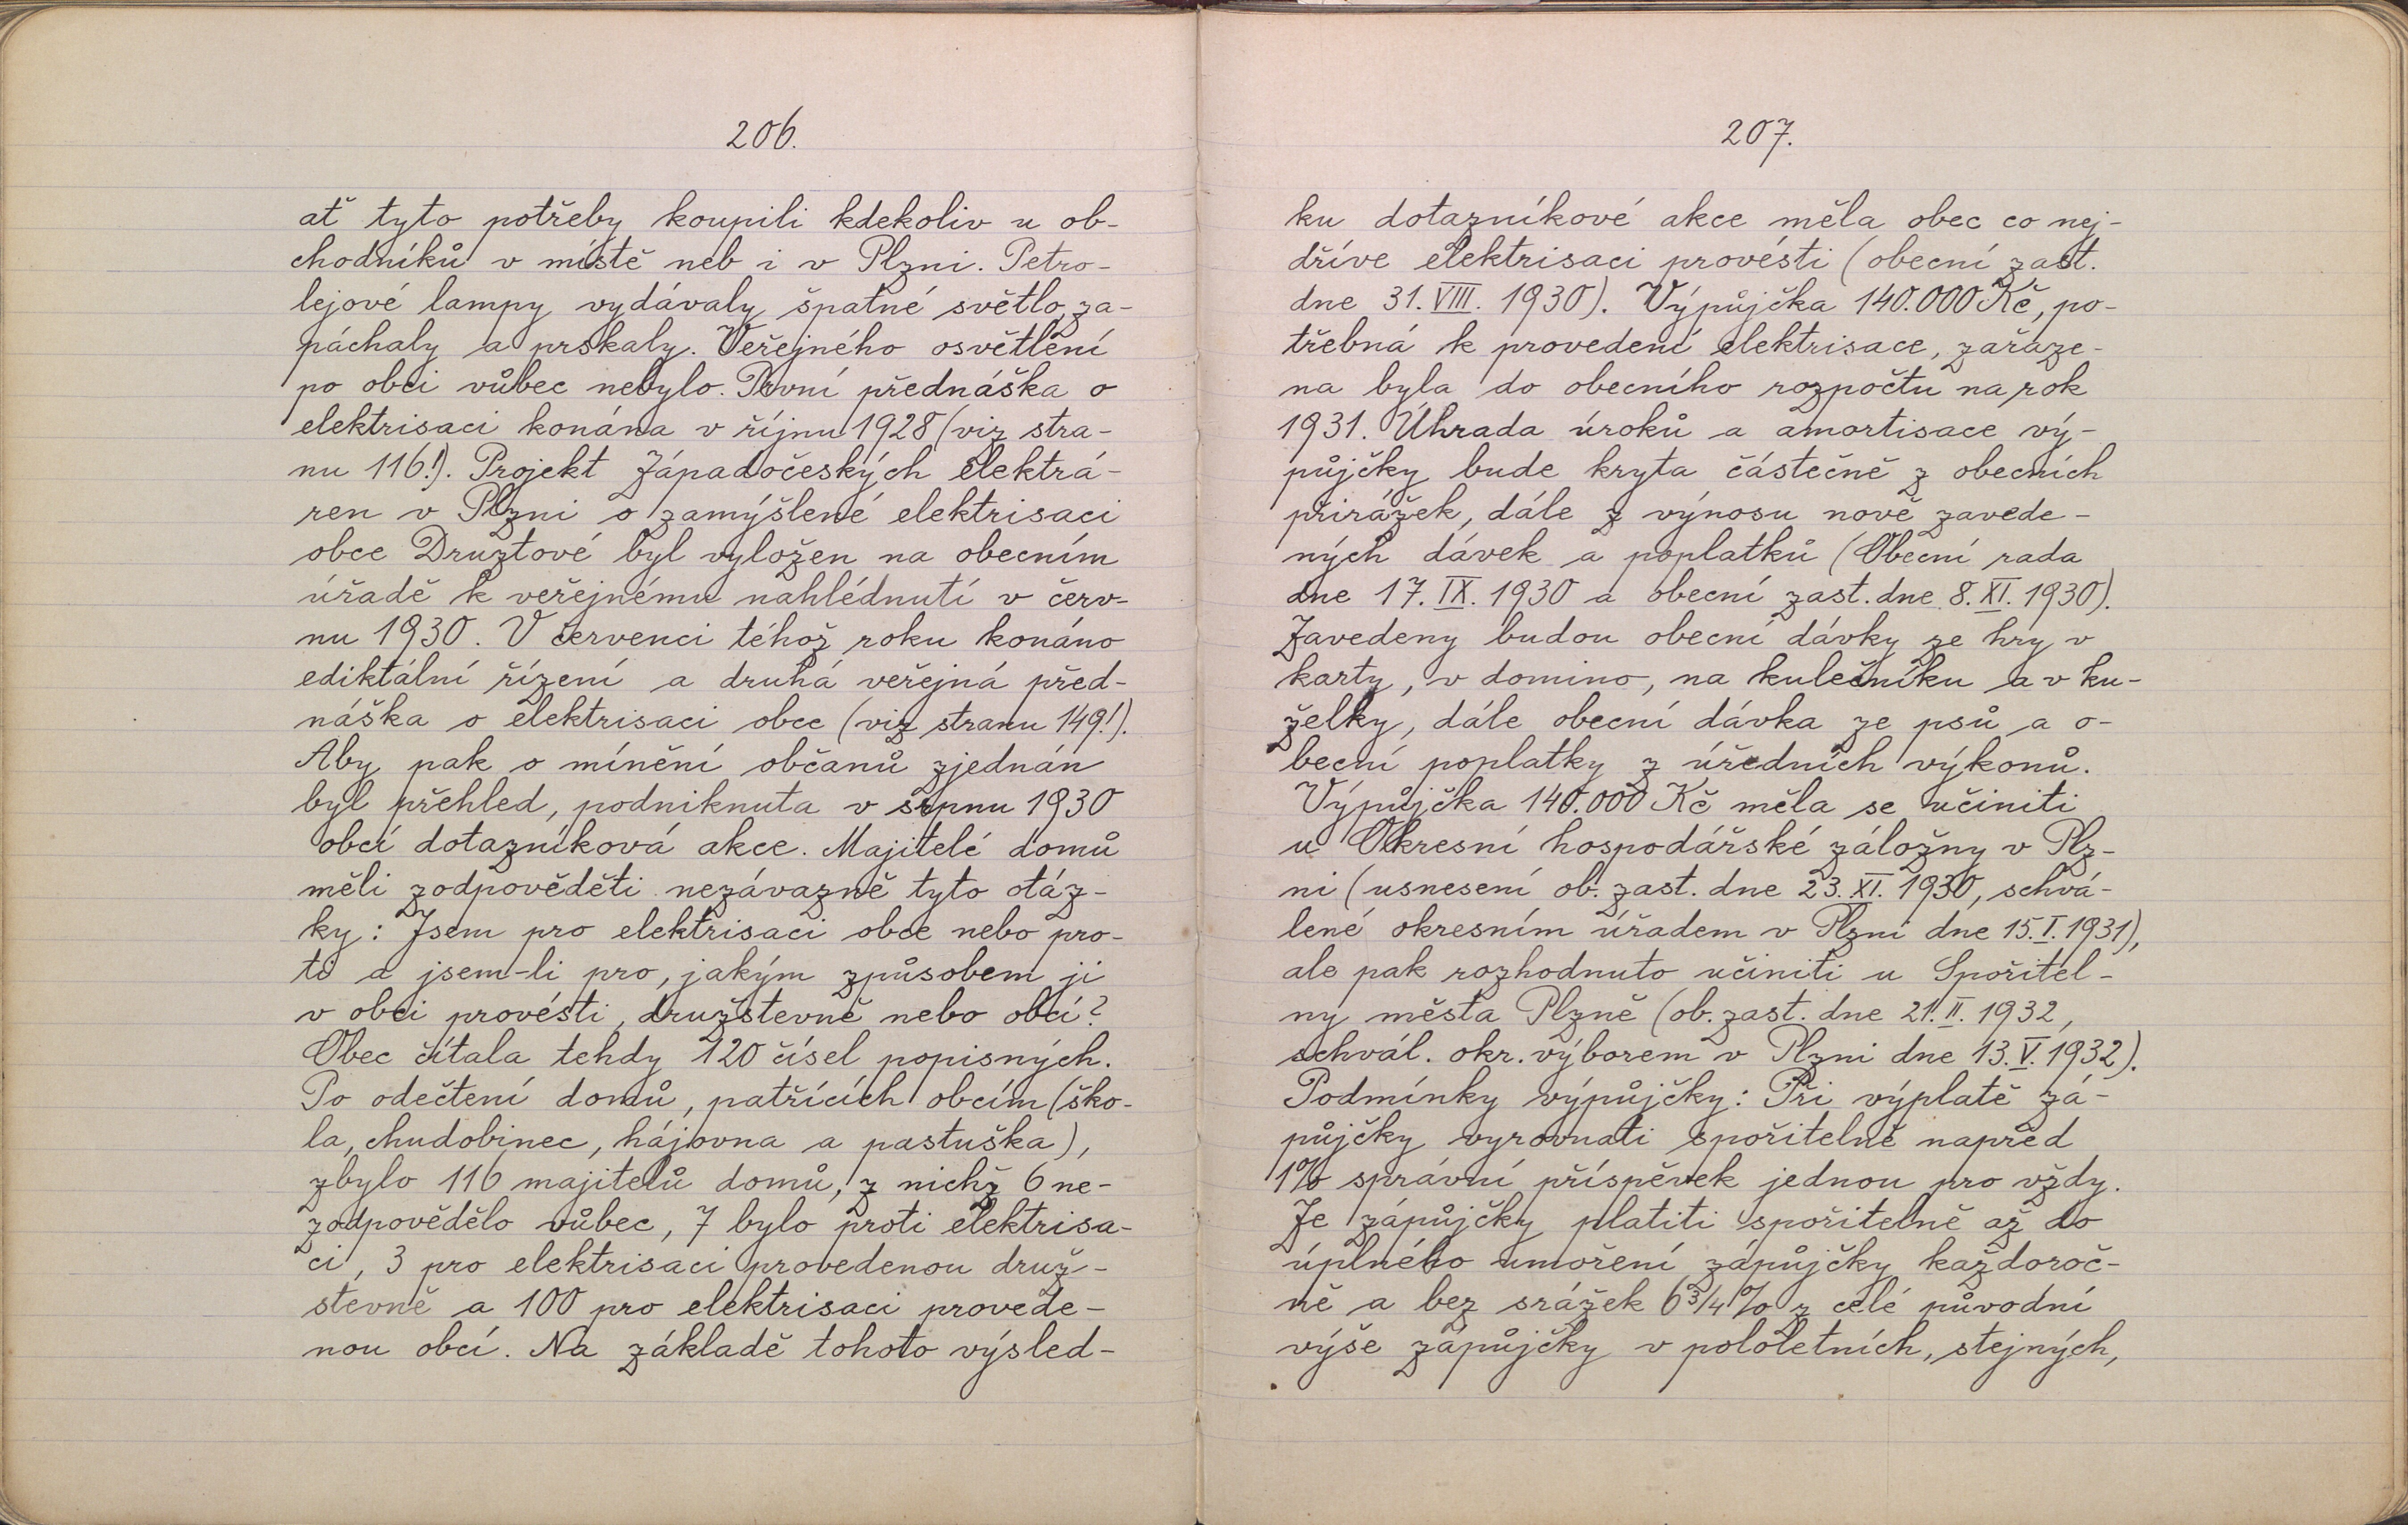 206.
ať tyto potřeby koupili kdekoliv u ob-
chodníků v místě neb i v Plzni. Petro-
lejové lampy vydávaly špatné světlo, za-
páchaly a prskaly. Veřejného osvětlení
po obci vůbec nebylo. První přednáška o
elektrisaci konána v říjnu 1928 (viz stra-
nu 116!). Projekt Západočeských elektrá-
ren v Plzni o zamýšlené elektrisaci
obce Druztové byl vyložen na obecním
úřadě k veřejnému nahlédnutí v červ-
nu 1930. V červenci téhož roku konáno
ediktální řízení a druhá veřejná před-
náška o elektrisaci obce (viz stranu 149!).
Aby pak o mínění občanů zjednán
byl přehled, podniknuta v srpnu 1930
obcí dotazníková akce. Majitelé domů
měli zodpověděti nezávazně tyto otáz-
ky: Jsem pro elektrisaci obce nebo pro-
ti a jsem-li pro, jakým způsobem ji
v obci provésti, družstevně nebo obcí?
Obec čítala tehdy 120 čísel popisných.
Po odečtení domů, patřících obcím (ško-
la, chudobinec, hájovna a pastuška),
zbylo 116 majitelů domů, z nichž 6 ne-
zodpovědělo vůbec, 7 bylo proti elektrisa-
ci, 3 pro elektrisaci provedenou druž-
stevně a 100 pro elektrisaci provede-
nou obcí. Na základě tohoto výsled-
207.
ku dotazníkové akce měla obec co nej-
dříve elektrisaci provésti (obecní zast.
dne 31. VIII. 1930). Výpůjčka 140.000 Kč, po-
třebná k provedení elektrisace, zařaze-
na byla do obecního rozpočtu na rok
1931. Úhrada úroků a amortisace vý-
půjčky bude kryta částečně z obecních
přirážek, dále z výnosu nově zavede-
ných dávek a poplatků (Obecní rada
dne 17. IX. 1930 a obecní zast. dne 8. XI. 1930).
Zavedeny budou obecní dávky ze hry v
karty, v domino, na kulečníku a v ku-
želky, dále obecní dávka ze psů a o-
becní poplatky z úředních výkonů.
Výpůjčka 140.000 Kč měla se učiniti
u Okresní hospodářské záložny v Plz-
ni (usnesení ob. zast. dne 23. XI. 1930, schvá-
lené okresním úřadem v Plzni dne 15. I. 1931),
ale pak rozhodnuto učiniti u Spořitel-
ny města Plzně (ob. zast. dne 21. II. 1932,
schvál. okr. výborem v Plzni dne 13. V. 1932).
Podmínky výpůjčky: Při výplatě zá-
půjčky vyrovnati spořitelně napřed
1% správní příspěvek jednou pro vždy.
Ze zápůjčky platiti spořitelně až do
úplného umoření zápůjčky každoroč-
ně a bez srážek 6 3/4 % z celé původní
výše zápůjčky v pololetních, stejných,